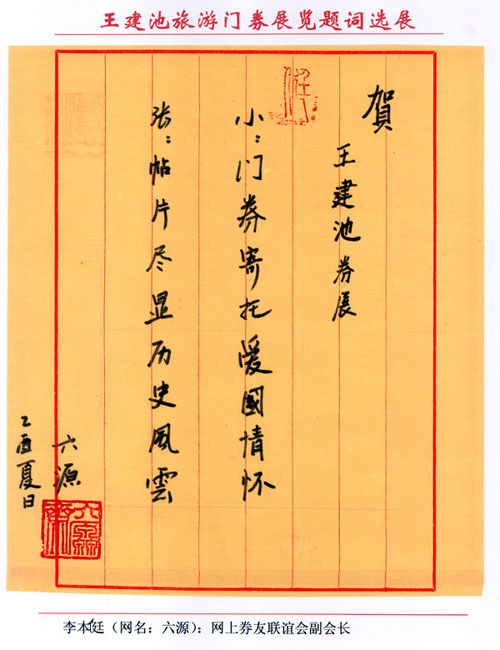 王建池旅游门券展览题词选展
賀
王建池券展
小：门券寄托爱國情怀
张：帖片尽显历史風雲
六源
乙酉夏日
李本廷（网名：六源）：网上券友联谊会副会长